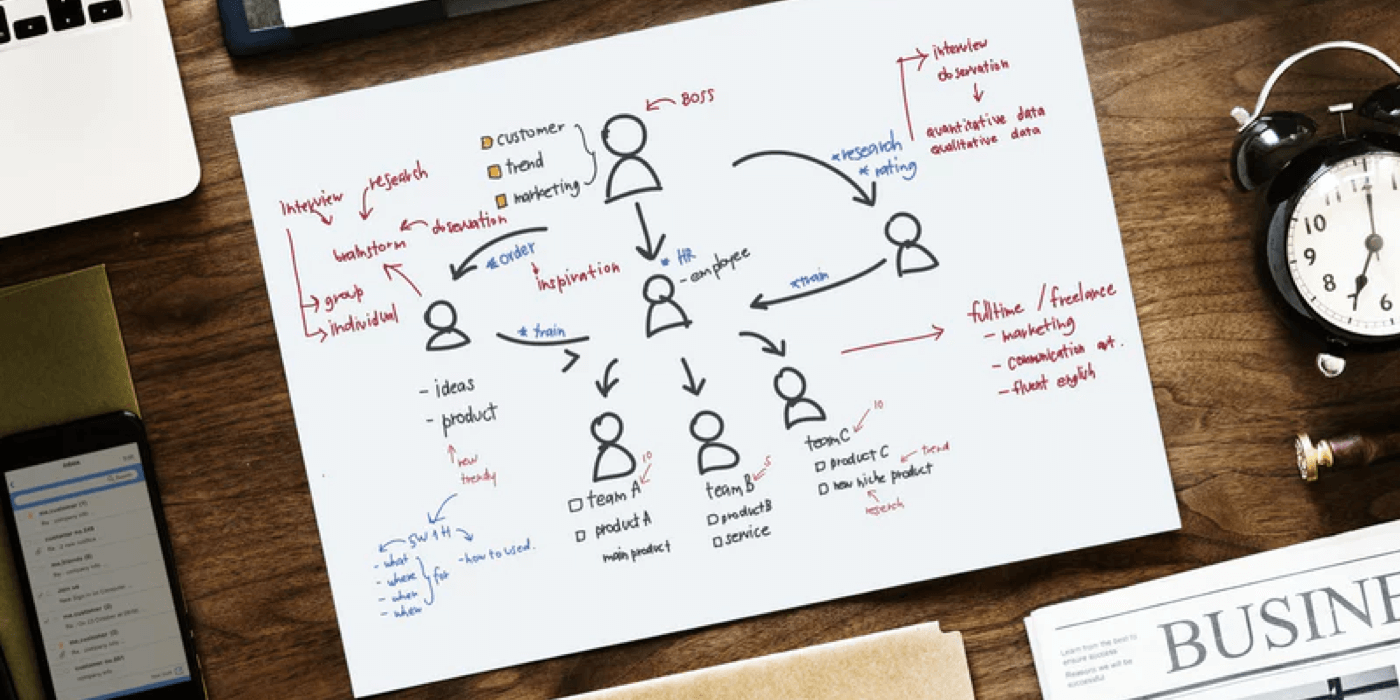 BOSS
customer
trend
marketing
interview
research
observation
brainstorm
group
individual
*order
inspiration
* HR
- employee
*research
* rating
interview
observation
quantitative data
qualitative data
*train
* train
fulltime / freelance
- marketing
- fluent english
- ideas
- product
new
trendy
5W1H
- what
- where
- when
- when
for
- how to used.
10
team A
product A
main product
5
team B
product B
service
10
team C
product C
trend
new niche product
research
10
9
8
12
6
BUSINE
Learn from the best to
ensure success
Reasons we will be
successful